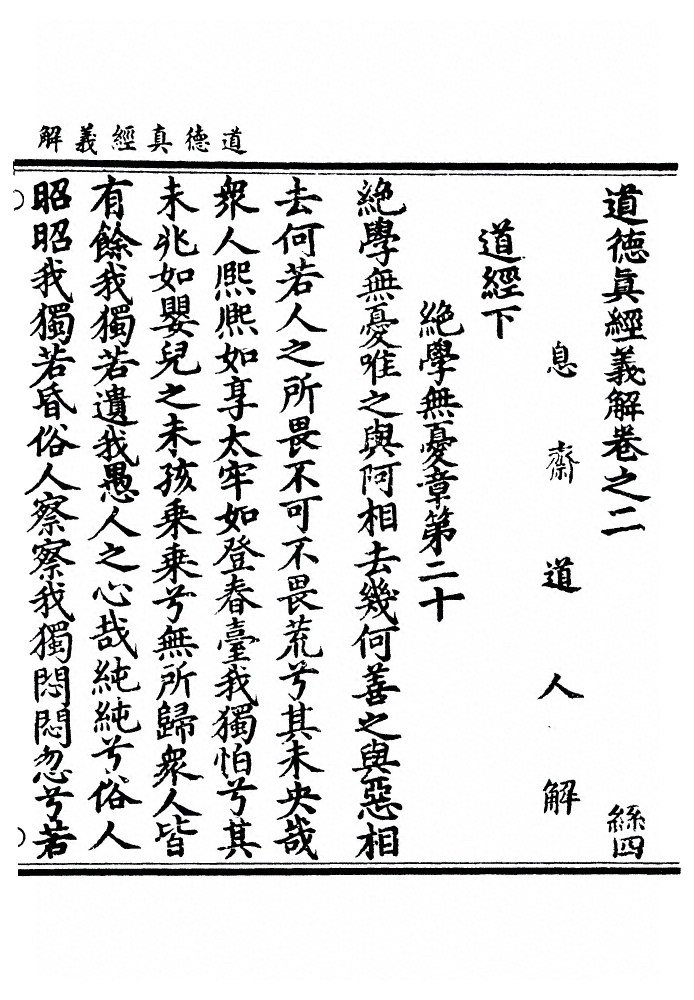 道德真經義解
道德真經義解卷之二
絲四
息齋道人解
道經下
絶學無憂章第二十
絶學無憂唯之與阿相去幾何善之與惡相
去何若人之所畏不可不畏荒兮其未央哉
衆人熈熈如享太牢如登春臺我獨怕兮其
未兆如嬰兒之未孩乘乘兮無所歸衆人皆
有餘我獨若遺我愚人之心哉純純兮俗人
昭昭我獨若昏俗人察察我獨悶悶忽兮若